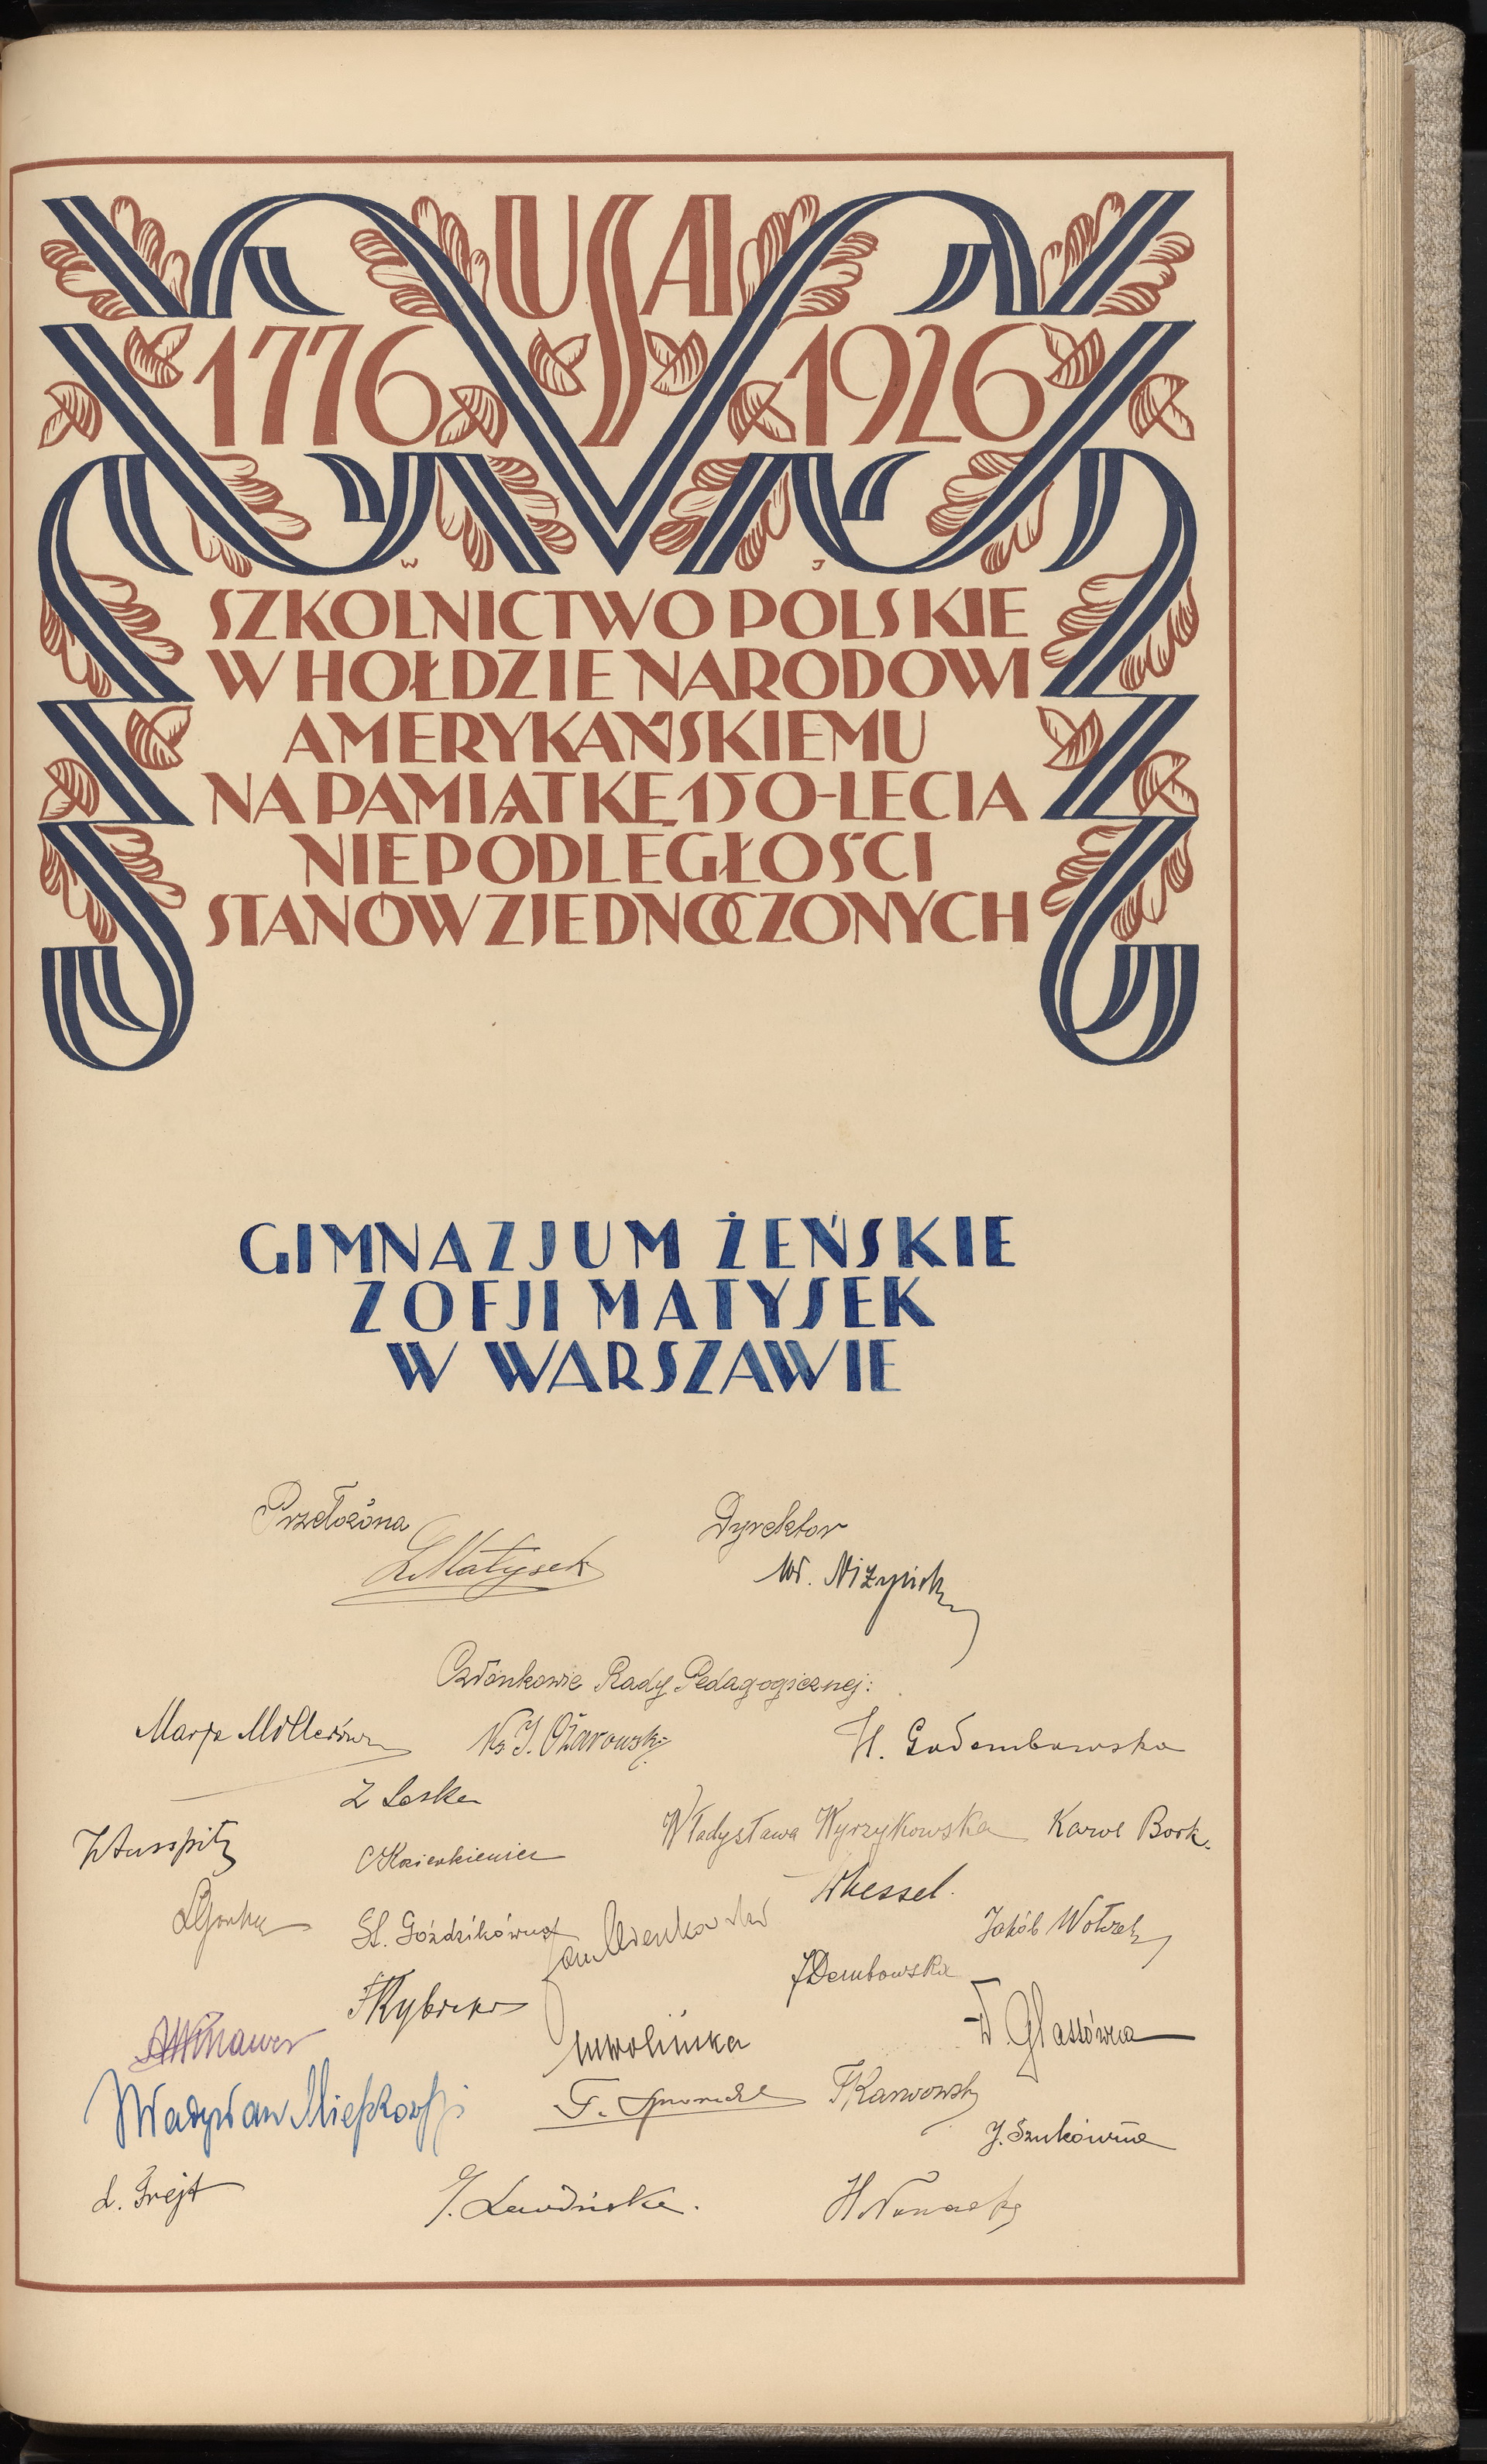 USA
1776 1926
W J
SZKOLNICTWO POLSKIE
W HOŁDZIE NARODOWI
AMERYKAŃSKIEMU
NA PAMIĄTKĘ 150-LECIA
NIEPODLEGŁOŚCI
STANÓW ZJEDNOCZONYCH
GIMNAZJUM ŻEŃSKIE
ZOFJI MATYSEK
W WARSZAWIE
Przełożona
Z Matysek
Dyrektor
Wł.
Członkowie Rady Pedagogicznej:
Marja Müllerówna Ks. J. Ożarowski H. Gołembowska
Z Laska
Władysława Wyrzykowska Karol Bork.
St. Goździkówna Whessel.
Jakób
J Dembowska
W Glassówna
Władysław
F. J. Szukówna
L. Frejt J. H